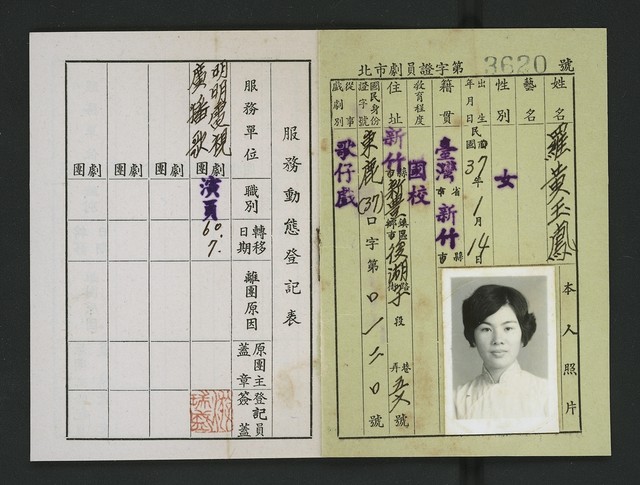 北市劇員證字第 3620 號
姓名 羅黃玉鳳
藝名
性別 女
出生年月日 民國37年1月14日
籍貫 臺灣省市 新竹縣市
教育程度 國校
住址 新竹縣市 鄉鎮市區 後湖 路 段 巷 弄 號
國民身份證字號 東鹿(37)口字第0一二0號
從事戲劇別 歌仔戲
本人照片
服務動態登記表
服務單位 明明電視廣播歌劇團
劇團
劇團
劇團
職別 演員
轉移日期 60.7.
離團原因
原團主蓋章
登記員簽蓋